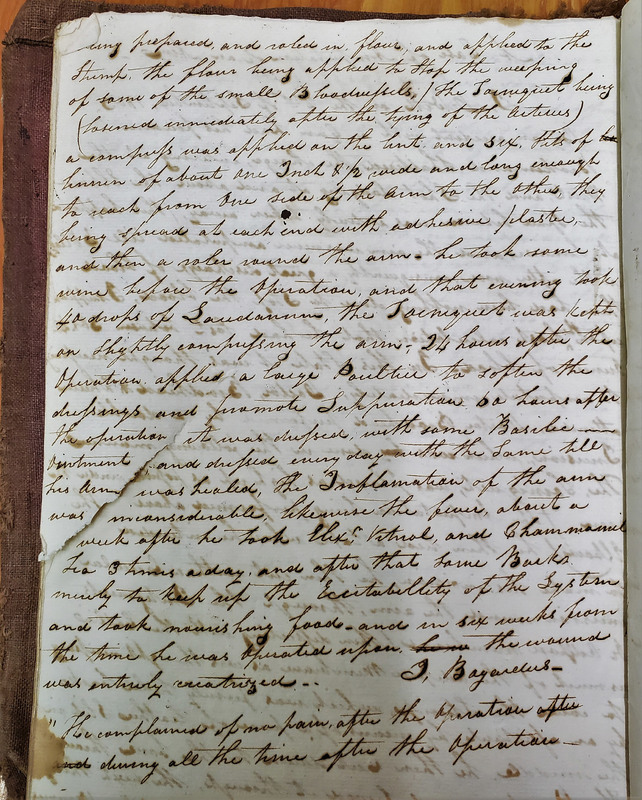 ing prepared, and roled in flour, and applied to the
Stump, the flour being applied to stop the weeping
of some of the small Bloodvessels, (the Tourniquet being
(loosened immediately after the tying of the Arteries)
a compress was applied on the lint and six slits of
linnen of about one Inch & ½ wide and long enough
to reach from one side of the Arm to the other, they
being spread at each end with adhesive plaster,
and then a roler round the arm - he took some
wine before the Operation, and that evening took
40 drops of Laudanum, the Tourniquet was kept
on slightly compressing the arm, 24 hours after the
Operation applied a large Poultice to soften the
dressings and promote Suppuration 60 hours after
the operation it was dressed, with some Basilic
Ointment and dressed every day with the Same till
his Arm was healed, the Inflamation of the arm
was inconsiderable, likewise the fever, about a
week after he took Elixr. Vitriol, and Chammomil
Tea 3 times a day, and after that some Bark
merely to keep up the Excitabillity of the System
and took nourishing food - and in six weeks from
the time he was Operated upon the wound
was entirely cicatrized - -
J, Bogardus -
" He complained of no pain, after the Operation after
and during all the time after the Operation -